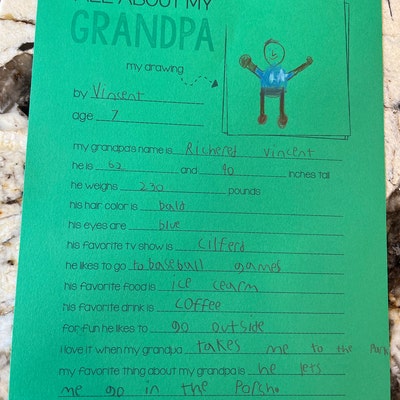 ALL ABOUT MY
GRANDPA
my drawing
by Vinsent
age 7
my grandpa's name is Richered Vincent
he is 62 and 40 inches tall
he weighs 230 pounds
his hair color is bald
his eyes are blue
his favorite tv show is Cilferd
he likes to go to baseball games
his favorite food is ice cearm
his favorite drink is COFFee
for fun he likes to go outside
i love it when my grandpa takes me to the Park
my favorite thing about my grandpa is he lets
me go in the Porch.